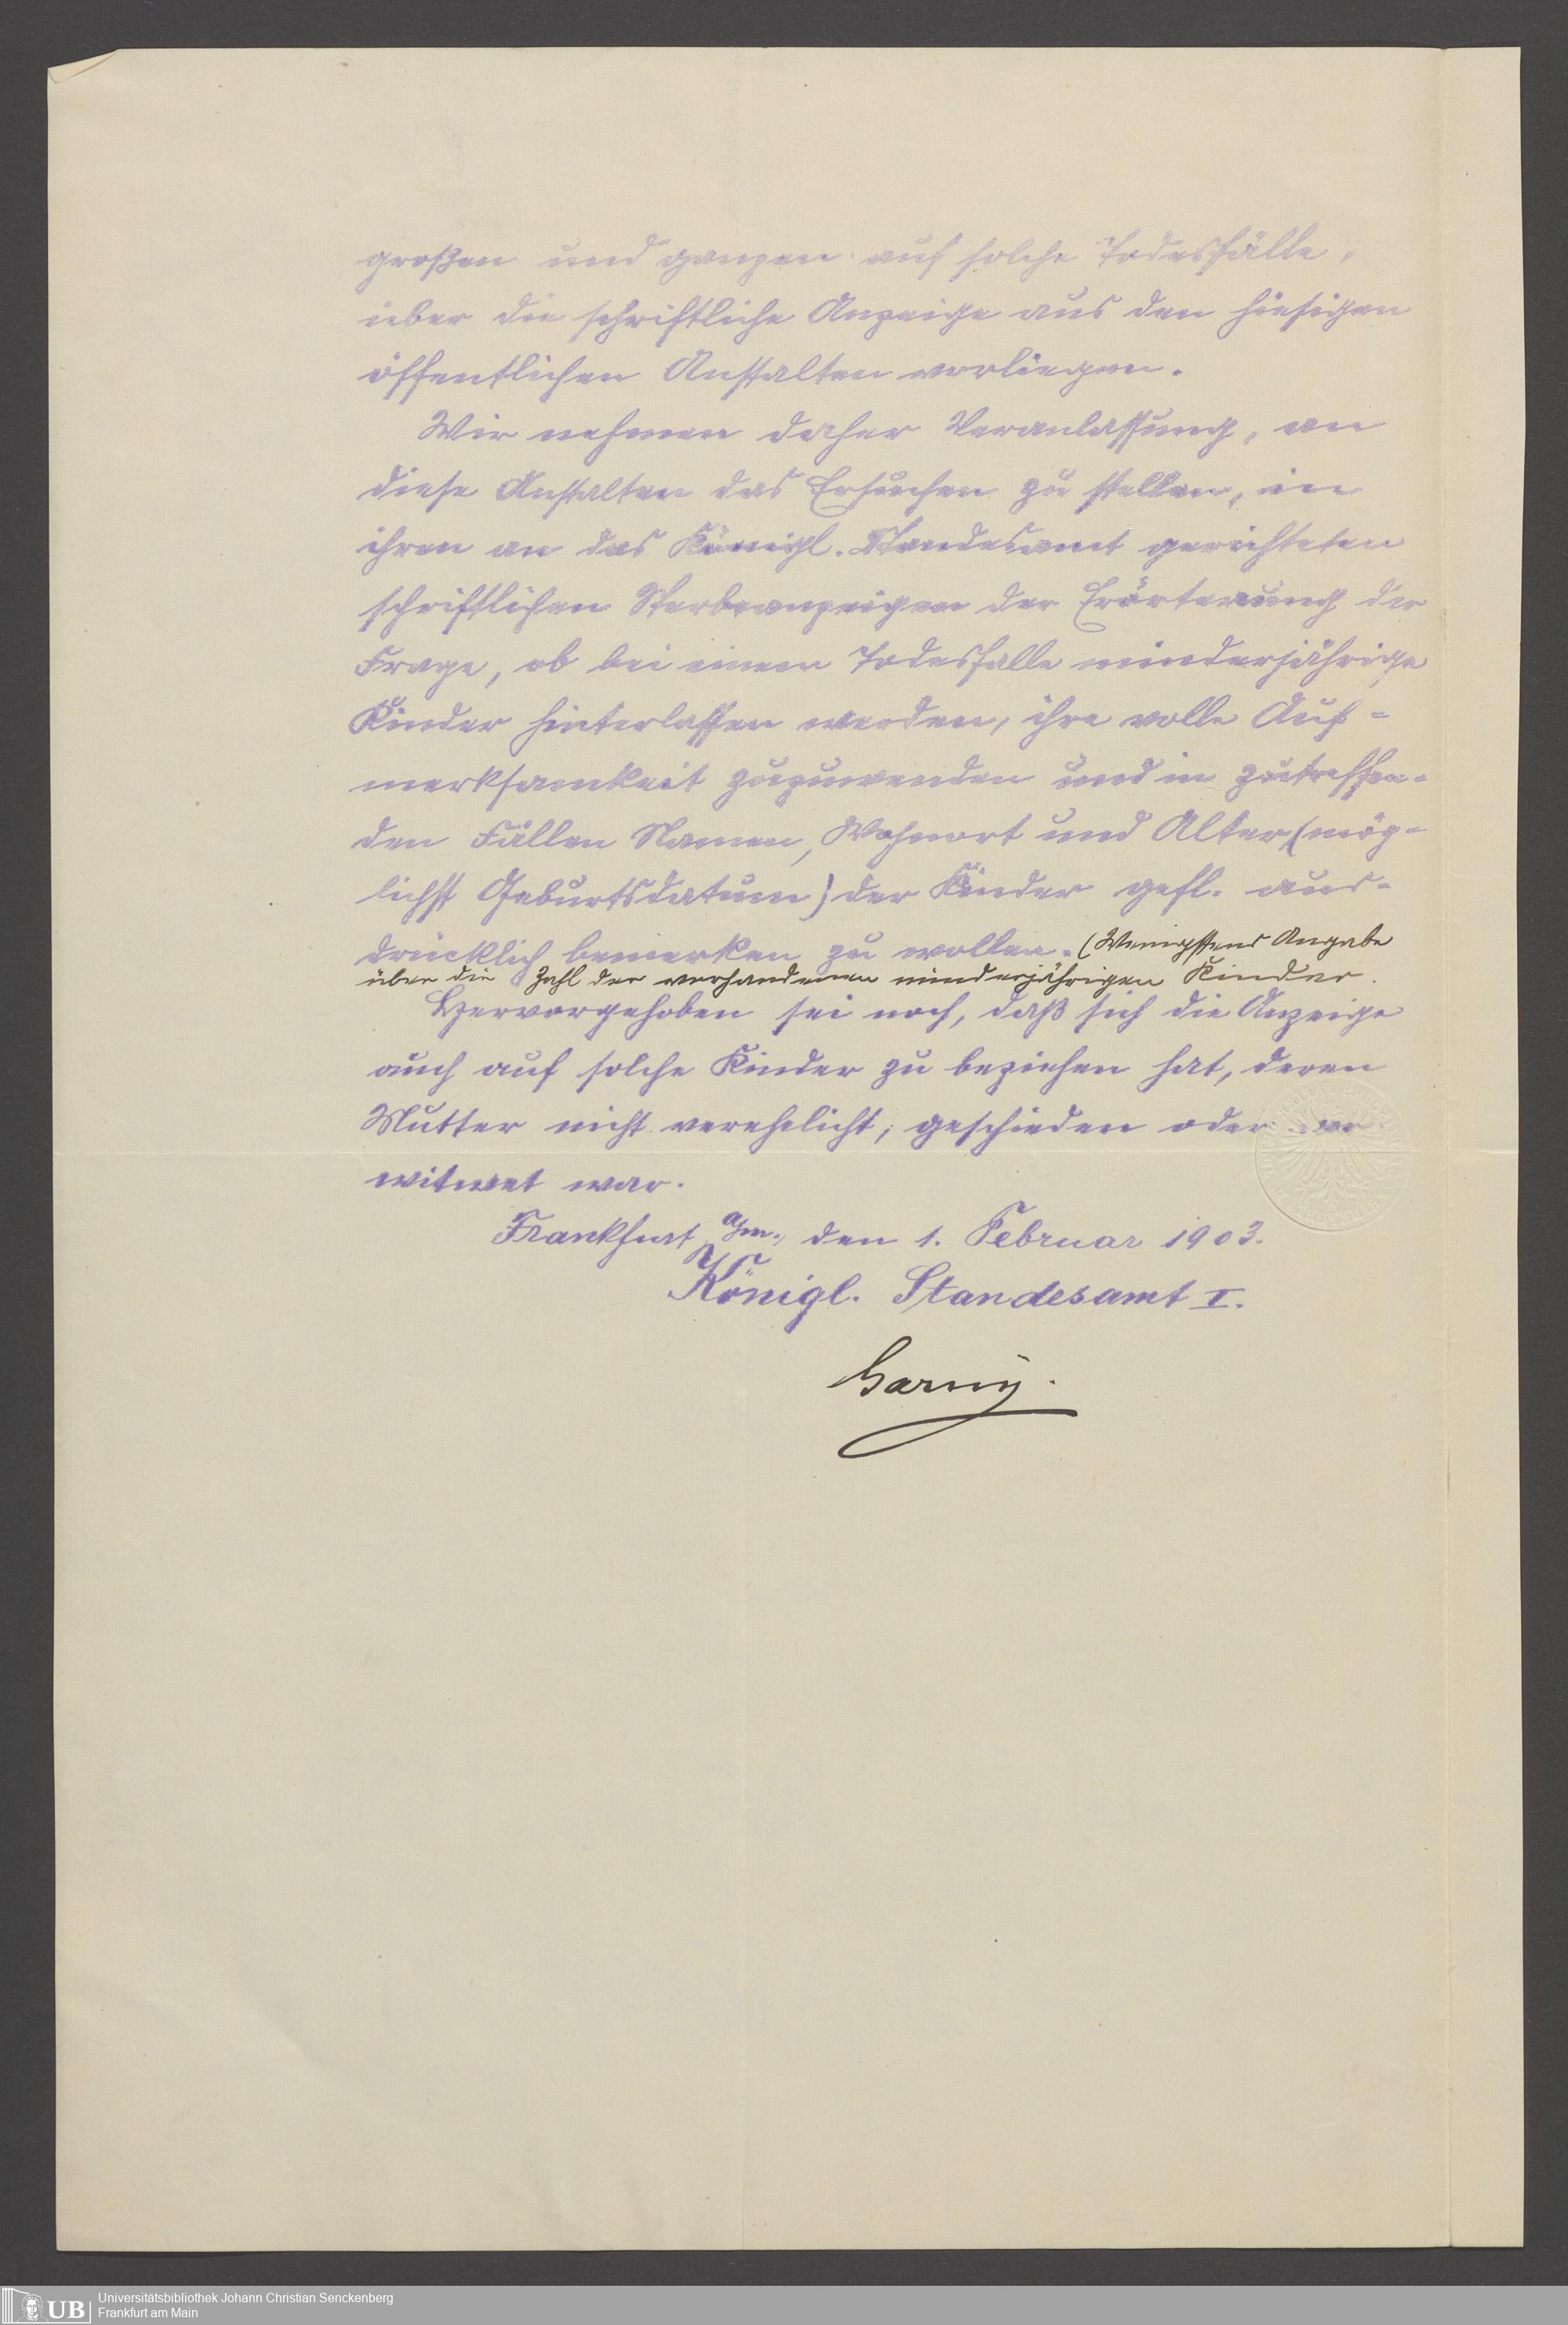 großen und ganzen auf solche Todesfälle,
über die schriftliche Anzeige aus den hiesigen
öffentlichen Anstalten vorliegen.
Wir nehmen daher Veranlassung, an
diese Anstalten das Ersuchen zu stellen, in
ihren an das Königl. Standesamt gerichteten
schriftlichen Sterbeanzeigen der Erörterung der
Frage, ob bei einem Todesfalle minderjährige
Kinder hinterlassen werden, ihre volle Auf-
merksamkeit zuzuwenden und in zutreffen-
den Fällen Namen, Wohnort und Alter (mög-
lichst Geburtsdatum) der Kinder gefl. aus-
drücklich bemerken zu wollen. (Wenigstens Angabe
über die Zahl der vorhandenen minderjährigen Kinder.
Hervorgehoben sei noch, daß sich die Anzeige
auch auf solche Kinder zu beziehen hat, deren
Mutter nicht verehelicht, geschieden oder ver
witwet war.
Frankfurt a/m., den 1. Februar 1903.
Königl. Standesamt I.
UB
Universitätsbibliothek Johann Christian Senckenberg
Frankfurt am Main